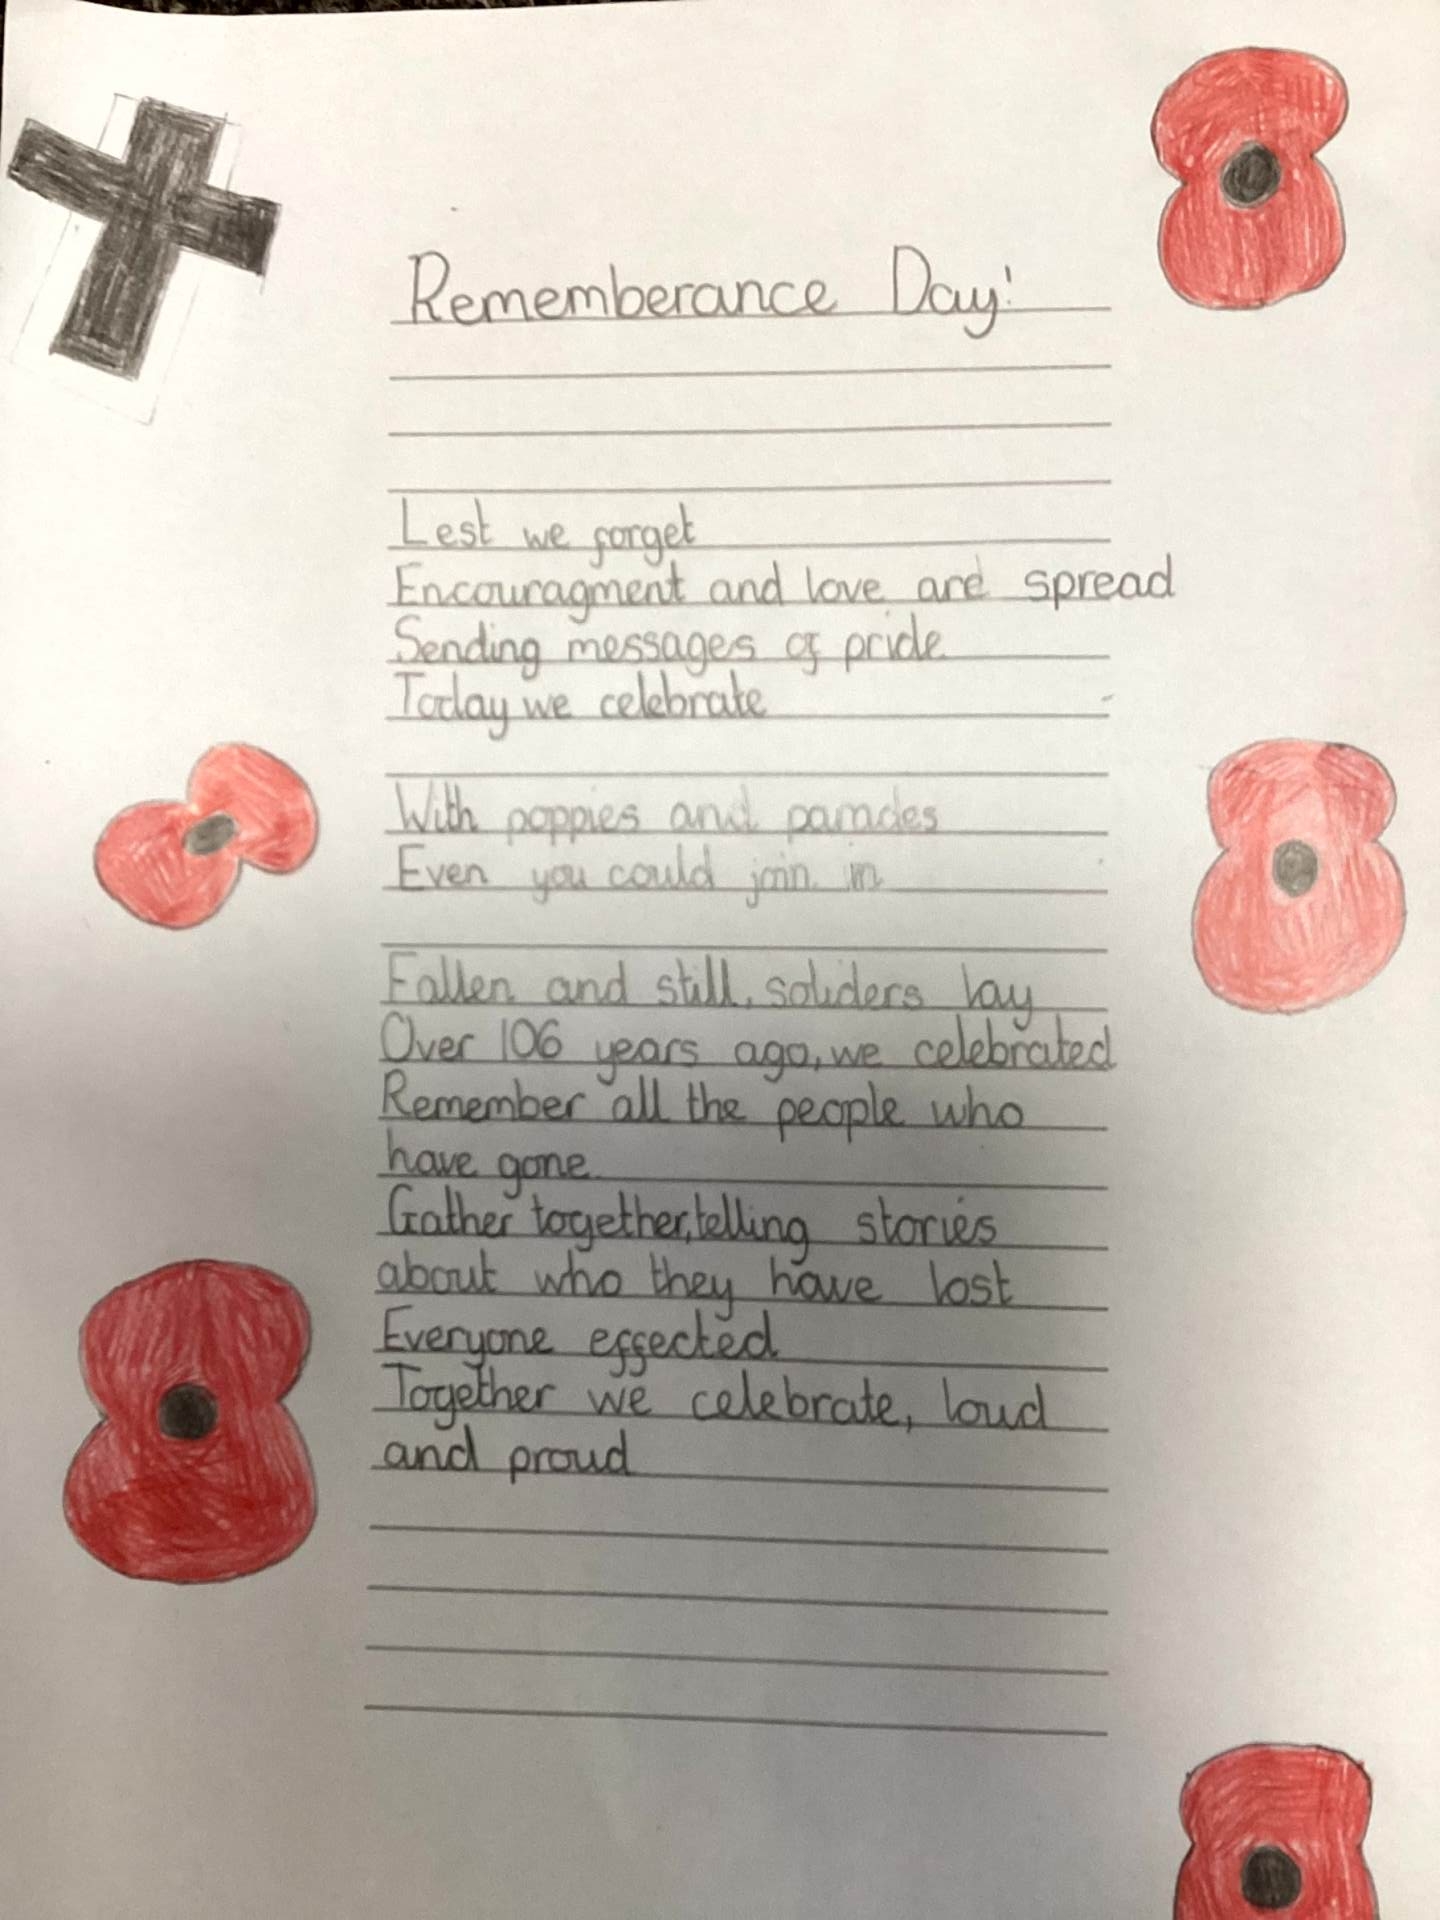 Rememberance Day!
Lest we forget
Encouragment and love are spread
Sending messages of pride
Today we celebrate
With poppies and parades
Even you could join in
Fallen and still, soliders lay
Over 106 years ago, we celebrated
Remember all the people who
have gone
Gather together, telling stories
about who they have lost
Everyone effected
Together we celebrate, loud
and proud